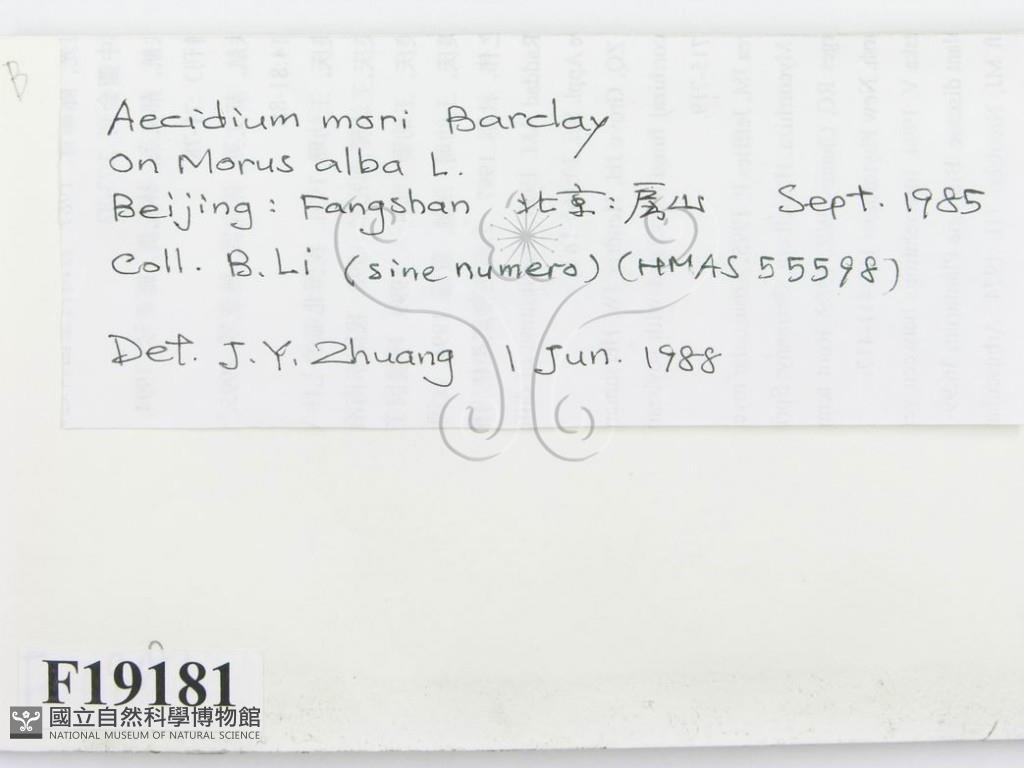 B
Aecidium mori Barclay
on Morus alba L.
Beijing: Fangshan 北京:房山 Sept. 1985
Coll. B. Li (sine numero) (HMAS 55598)
Det. J.Y. Zhuang 1 Jun. 1988
F19181
國立自然科學博物館
NATIONAL MUSEUM OF NATURAL SCIENCE